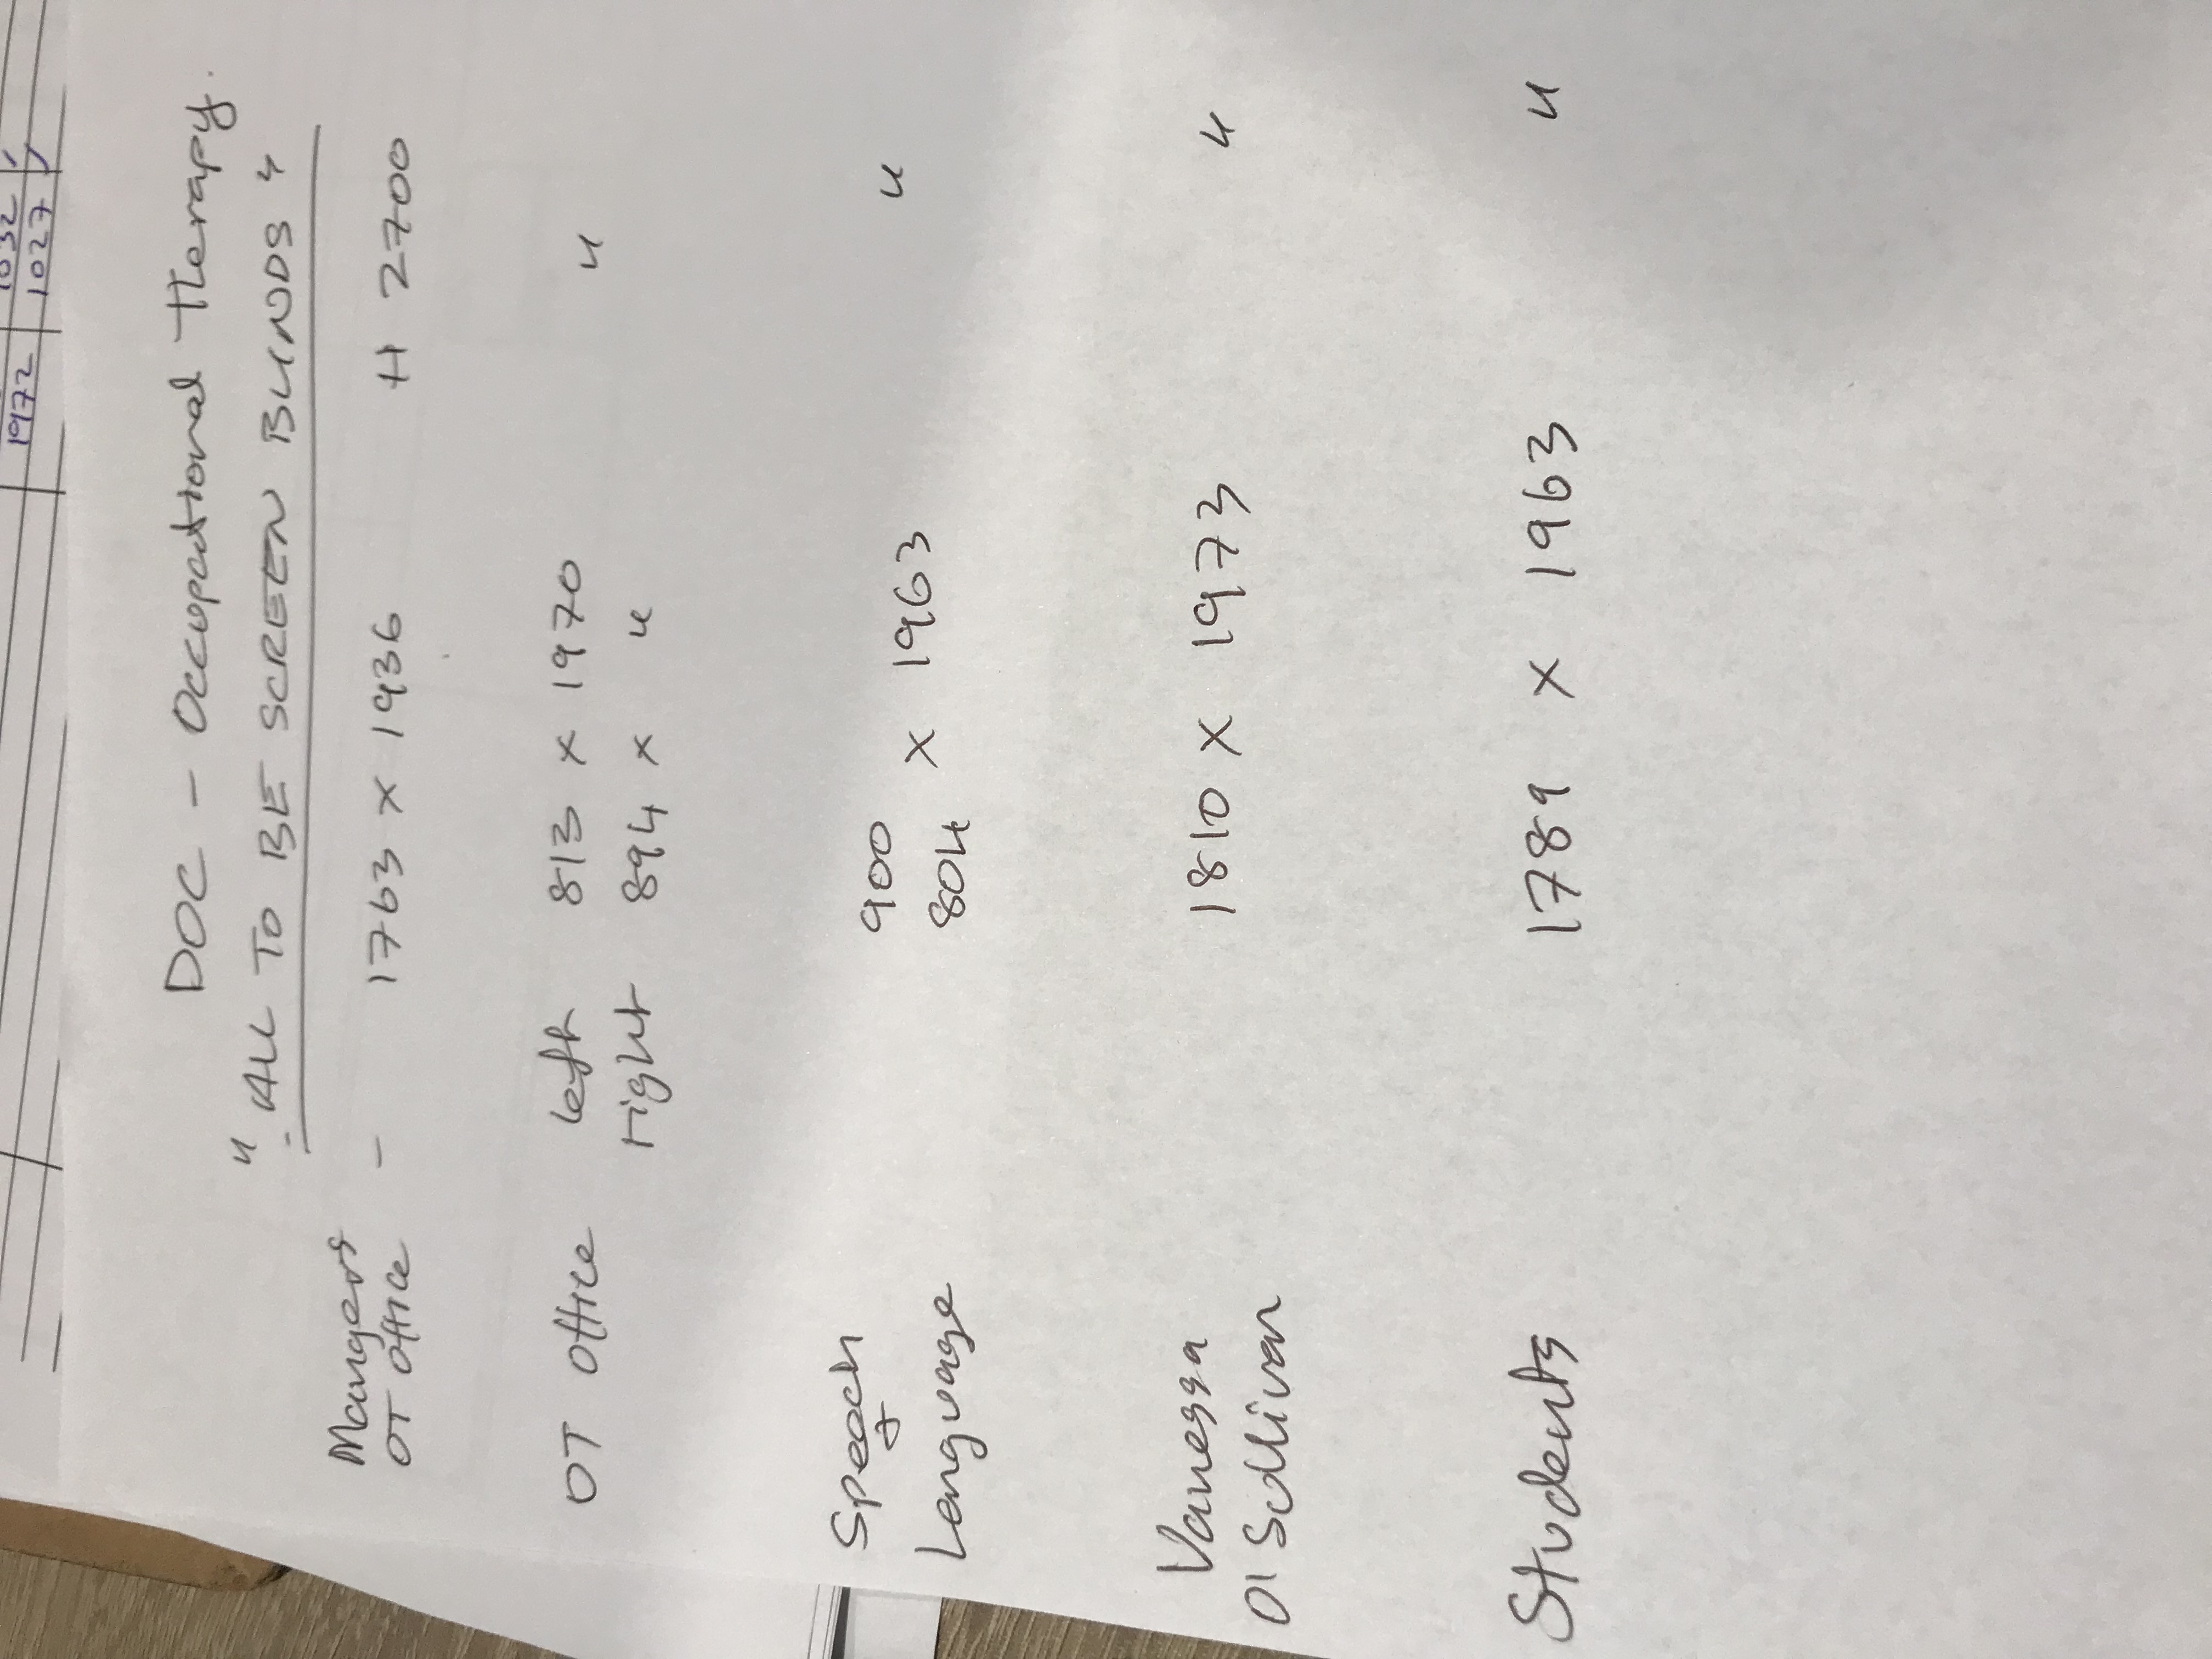 1032
1972 1027
DOC - Occupational Therapy.
"ALL TO BE SCREEN BLINDS"
Managers
OT office - 1763 x 1936 H 2700
OT office left 813 x 1970 "
right 894 x "
Speech 900 "
+ 804 x 1963
Language
Vanessa 1810 x 1973 "
O'Sullivan
Students 1789 x 1963 "